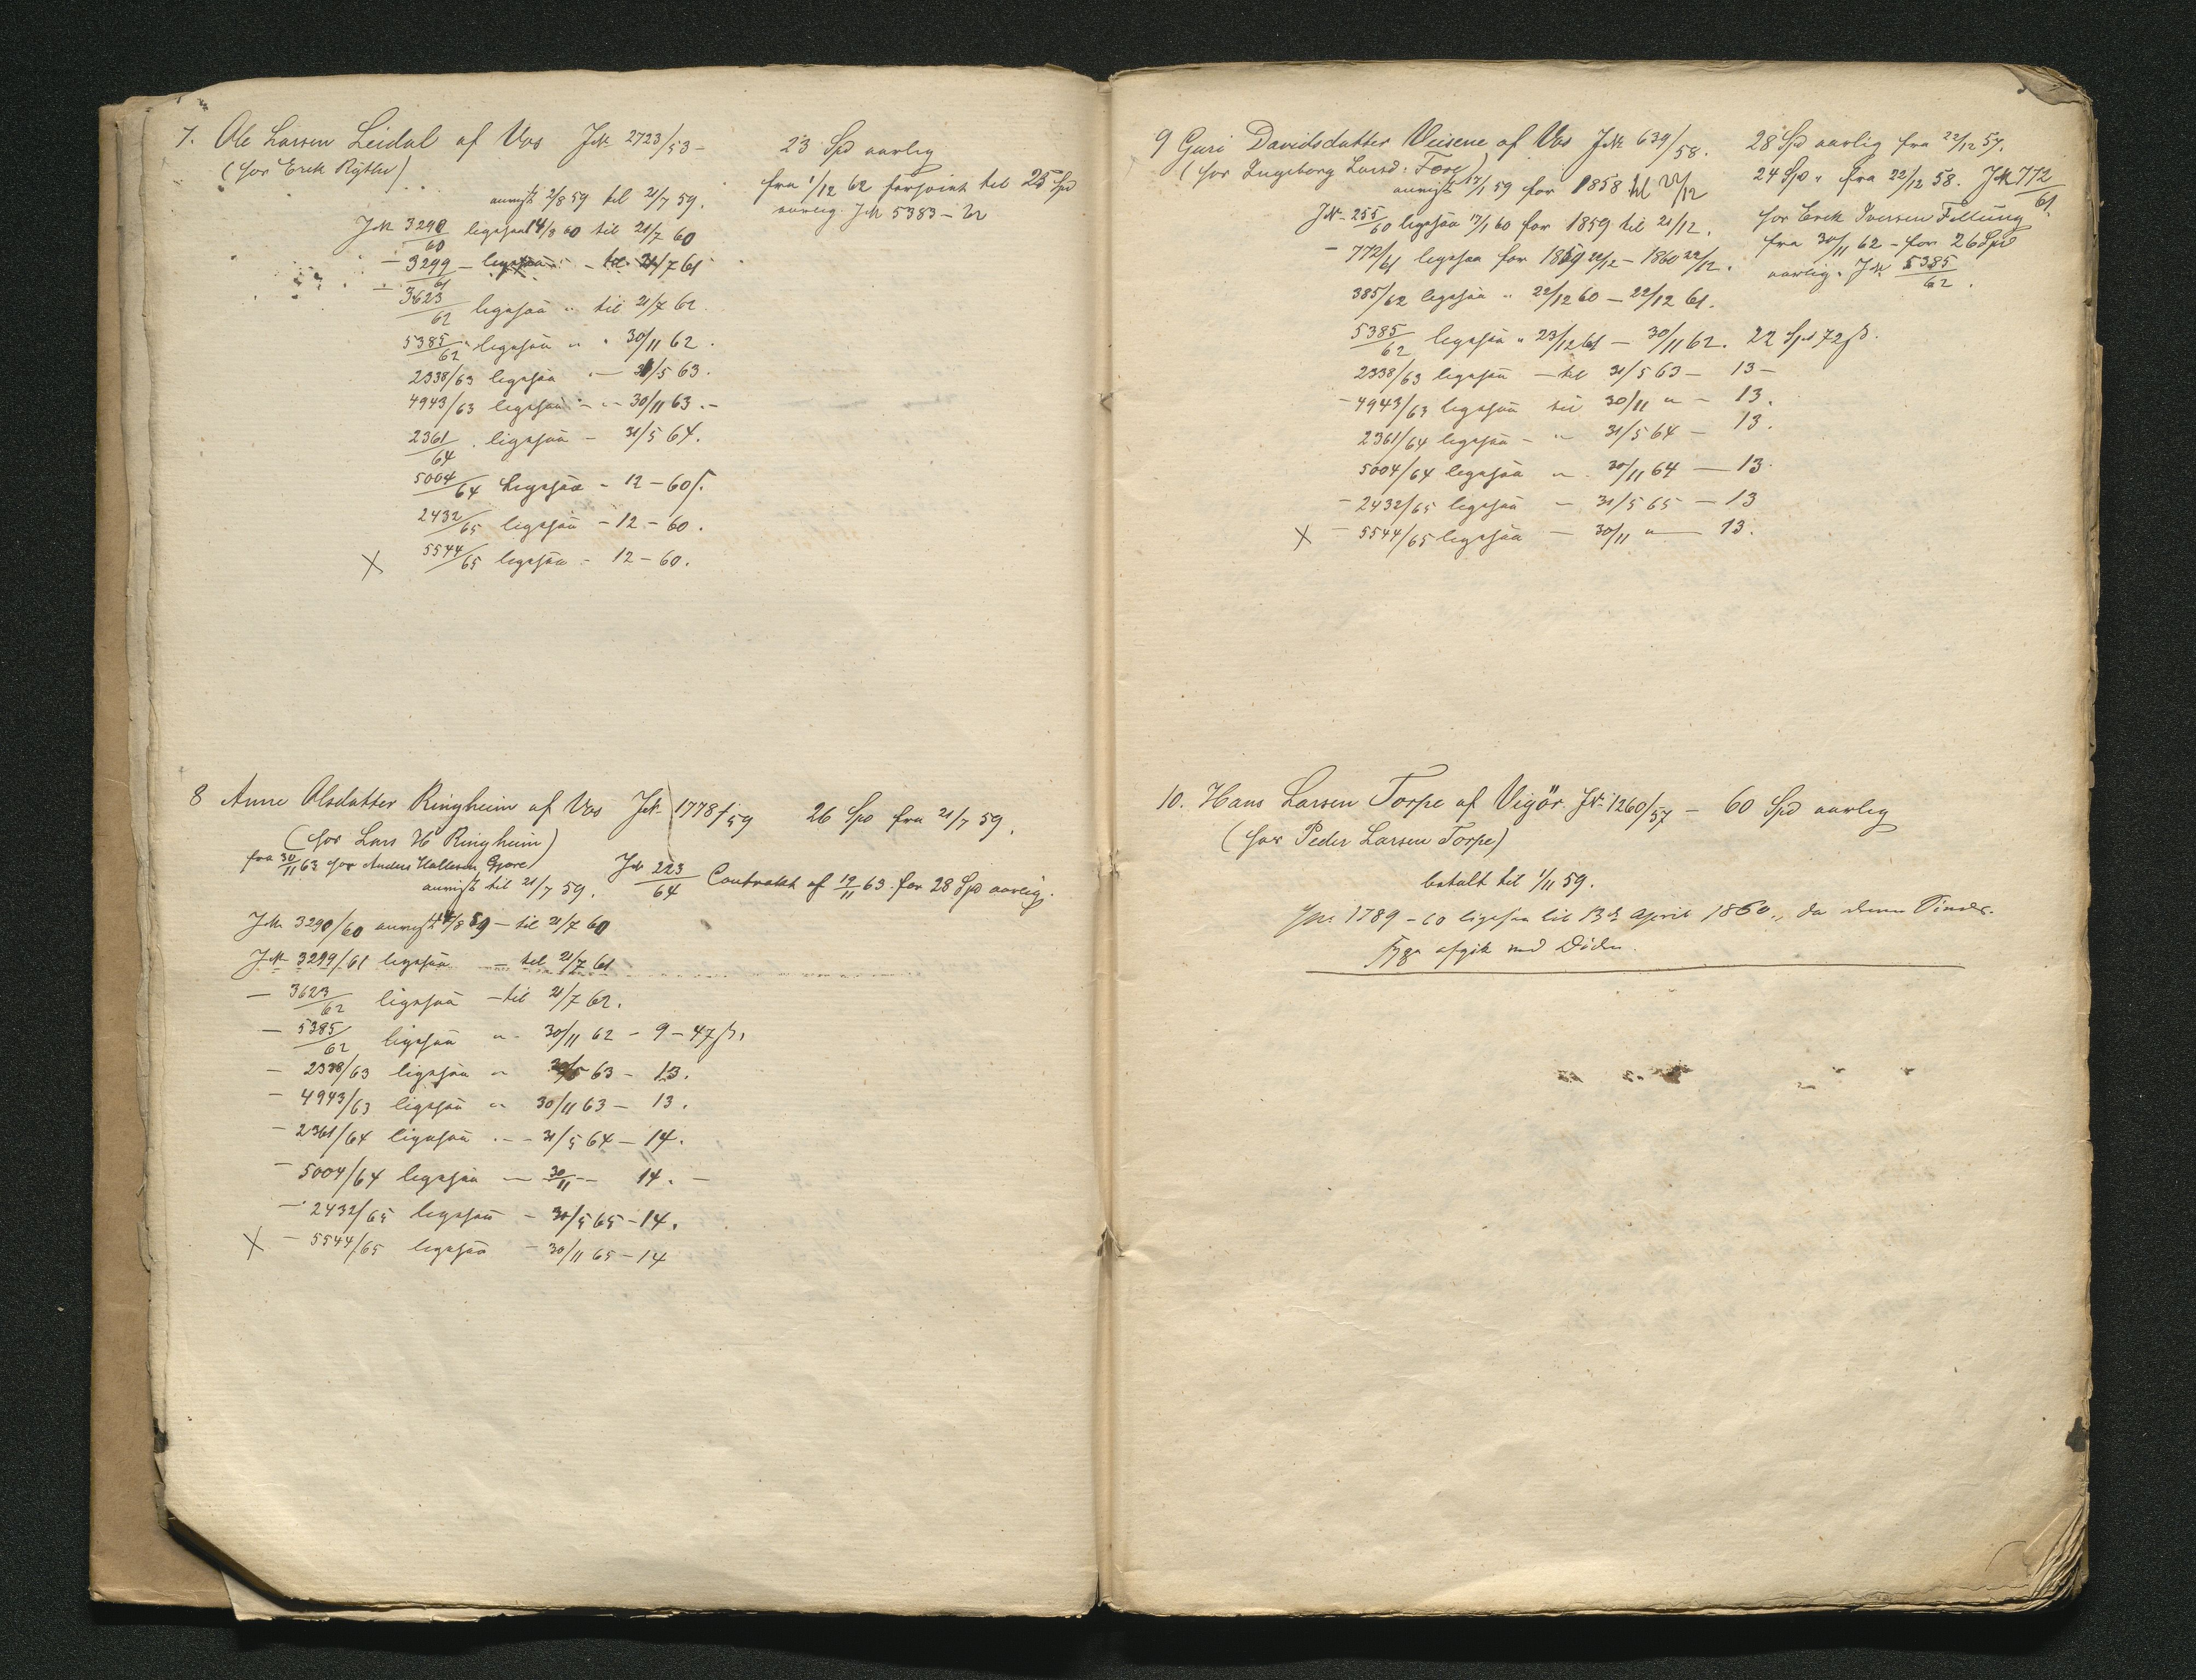 7. Ole Larsen Leidal af Vos J№ 2723/53 - 23 Spd aarlig
(hos Erik Rytter)
fra 1/12 62 forhøiet til 25 Spd
aarlig. J№ 5383 - 62
anvist 2/8 59 til 21/7 59.
J№ 3290/60 ligesaa 14/8 60 til 21/7 60
- 3299/61 - ligesaa - til 21/7 61
- 3623/62 ligesaa " til 21/7 62.
5385/62 ligesaa " " 30/11 62.
2338/63 ligesaa - 31/5 63.
4943/63 ligesaa - - 30/11 63. -
2361/64 ligesaa - 31/5 64.
5004/64 Ligesaa - 12 - 60 ß.
2432/65 ligesaa - 12 - 60.
X 5544/65 ligesaa - 12 - 60.
8 Anne Olsdatter Ringheim af Vos J№ 1778/59 26 Spd fra 21/7 59.
(hos Lars H Ringheim)
fra 30/11 63 hos Anders Hallesen Gjøre)
J№ 223/64 Contrakt af 19/11 63. for 28 Spd aarlig.
anvist til 21/7 59.
J№ 3290/60 anvist 14/8 59 - til 21/7 60
J№ 3299/61 ligesaa - til 21/7 61
- 3623/62 ligesaa - til 21/7 62.
- 5385/62 ligesaa " 30/11 62 - 9 - 47 ß.
- 2338/63 ligesaa " 31/5 63 - 13.
- 4943/63 ligesaa " 30/11 63 - 13.
- 2361/64 ligesaa - - 31/5 64 - 14.
- 5004/64 ligesaa - 30/11 - 14. -
- 2432/65 ligesaa - 31/5 65 - 14.
X - 5544/65 ligesaa - 30/11 65 - 14
9 Guri Davidsdatter Veisene af Vos J№ 639/58. 28 Spd aarlig fra 22/12 57.
(hos Ingeborg Larsd: Tore) 24 Spd " fra 22/12 58. J№ 772/61.
anvist 17/1 59 for 1858 til 22/12
hos Erik Iversen Fellung
fra 30/11 62 - for 26 Spd
aarlig. J№ 5385/62.
J№ 255/60 ligesaa 17/1 60 for 1859 til 21/12.
- 772/61 ligesaa for 1859 22/12 - 1860 22/12.
385/62 ligesaa " 22/12 60 - 22/12 61.
5385/62 ligesaa " 23/12 61 - 30/11 62. 22 Spd 72 ß.
2338/63 ligesaa - til 31/5 63 - 13 -
- 4943/63 ligesaa til 30/11 " - 13.
2361/64 ligesaa - " 31/5 64 - 13.
5004/64 ligesaa " 30/11 64 - 13.
- 2432/65 ligesaa - 31/5 65 - 13
X - 5544/65 ligesaa - 30/11 " - 13.
10. Hans Larsen Torpe af Vigör. J№ 1260/57 - 60 Spd aarlig
(hos Peder Larsen Torpe)
betalt til 1/11 59.
J№ 1789 - 60 ligesaa til 13de April 1860, da denne Sinds-
syge afgik ved Døden.